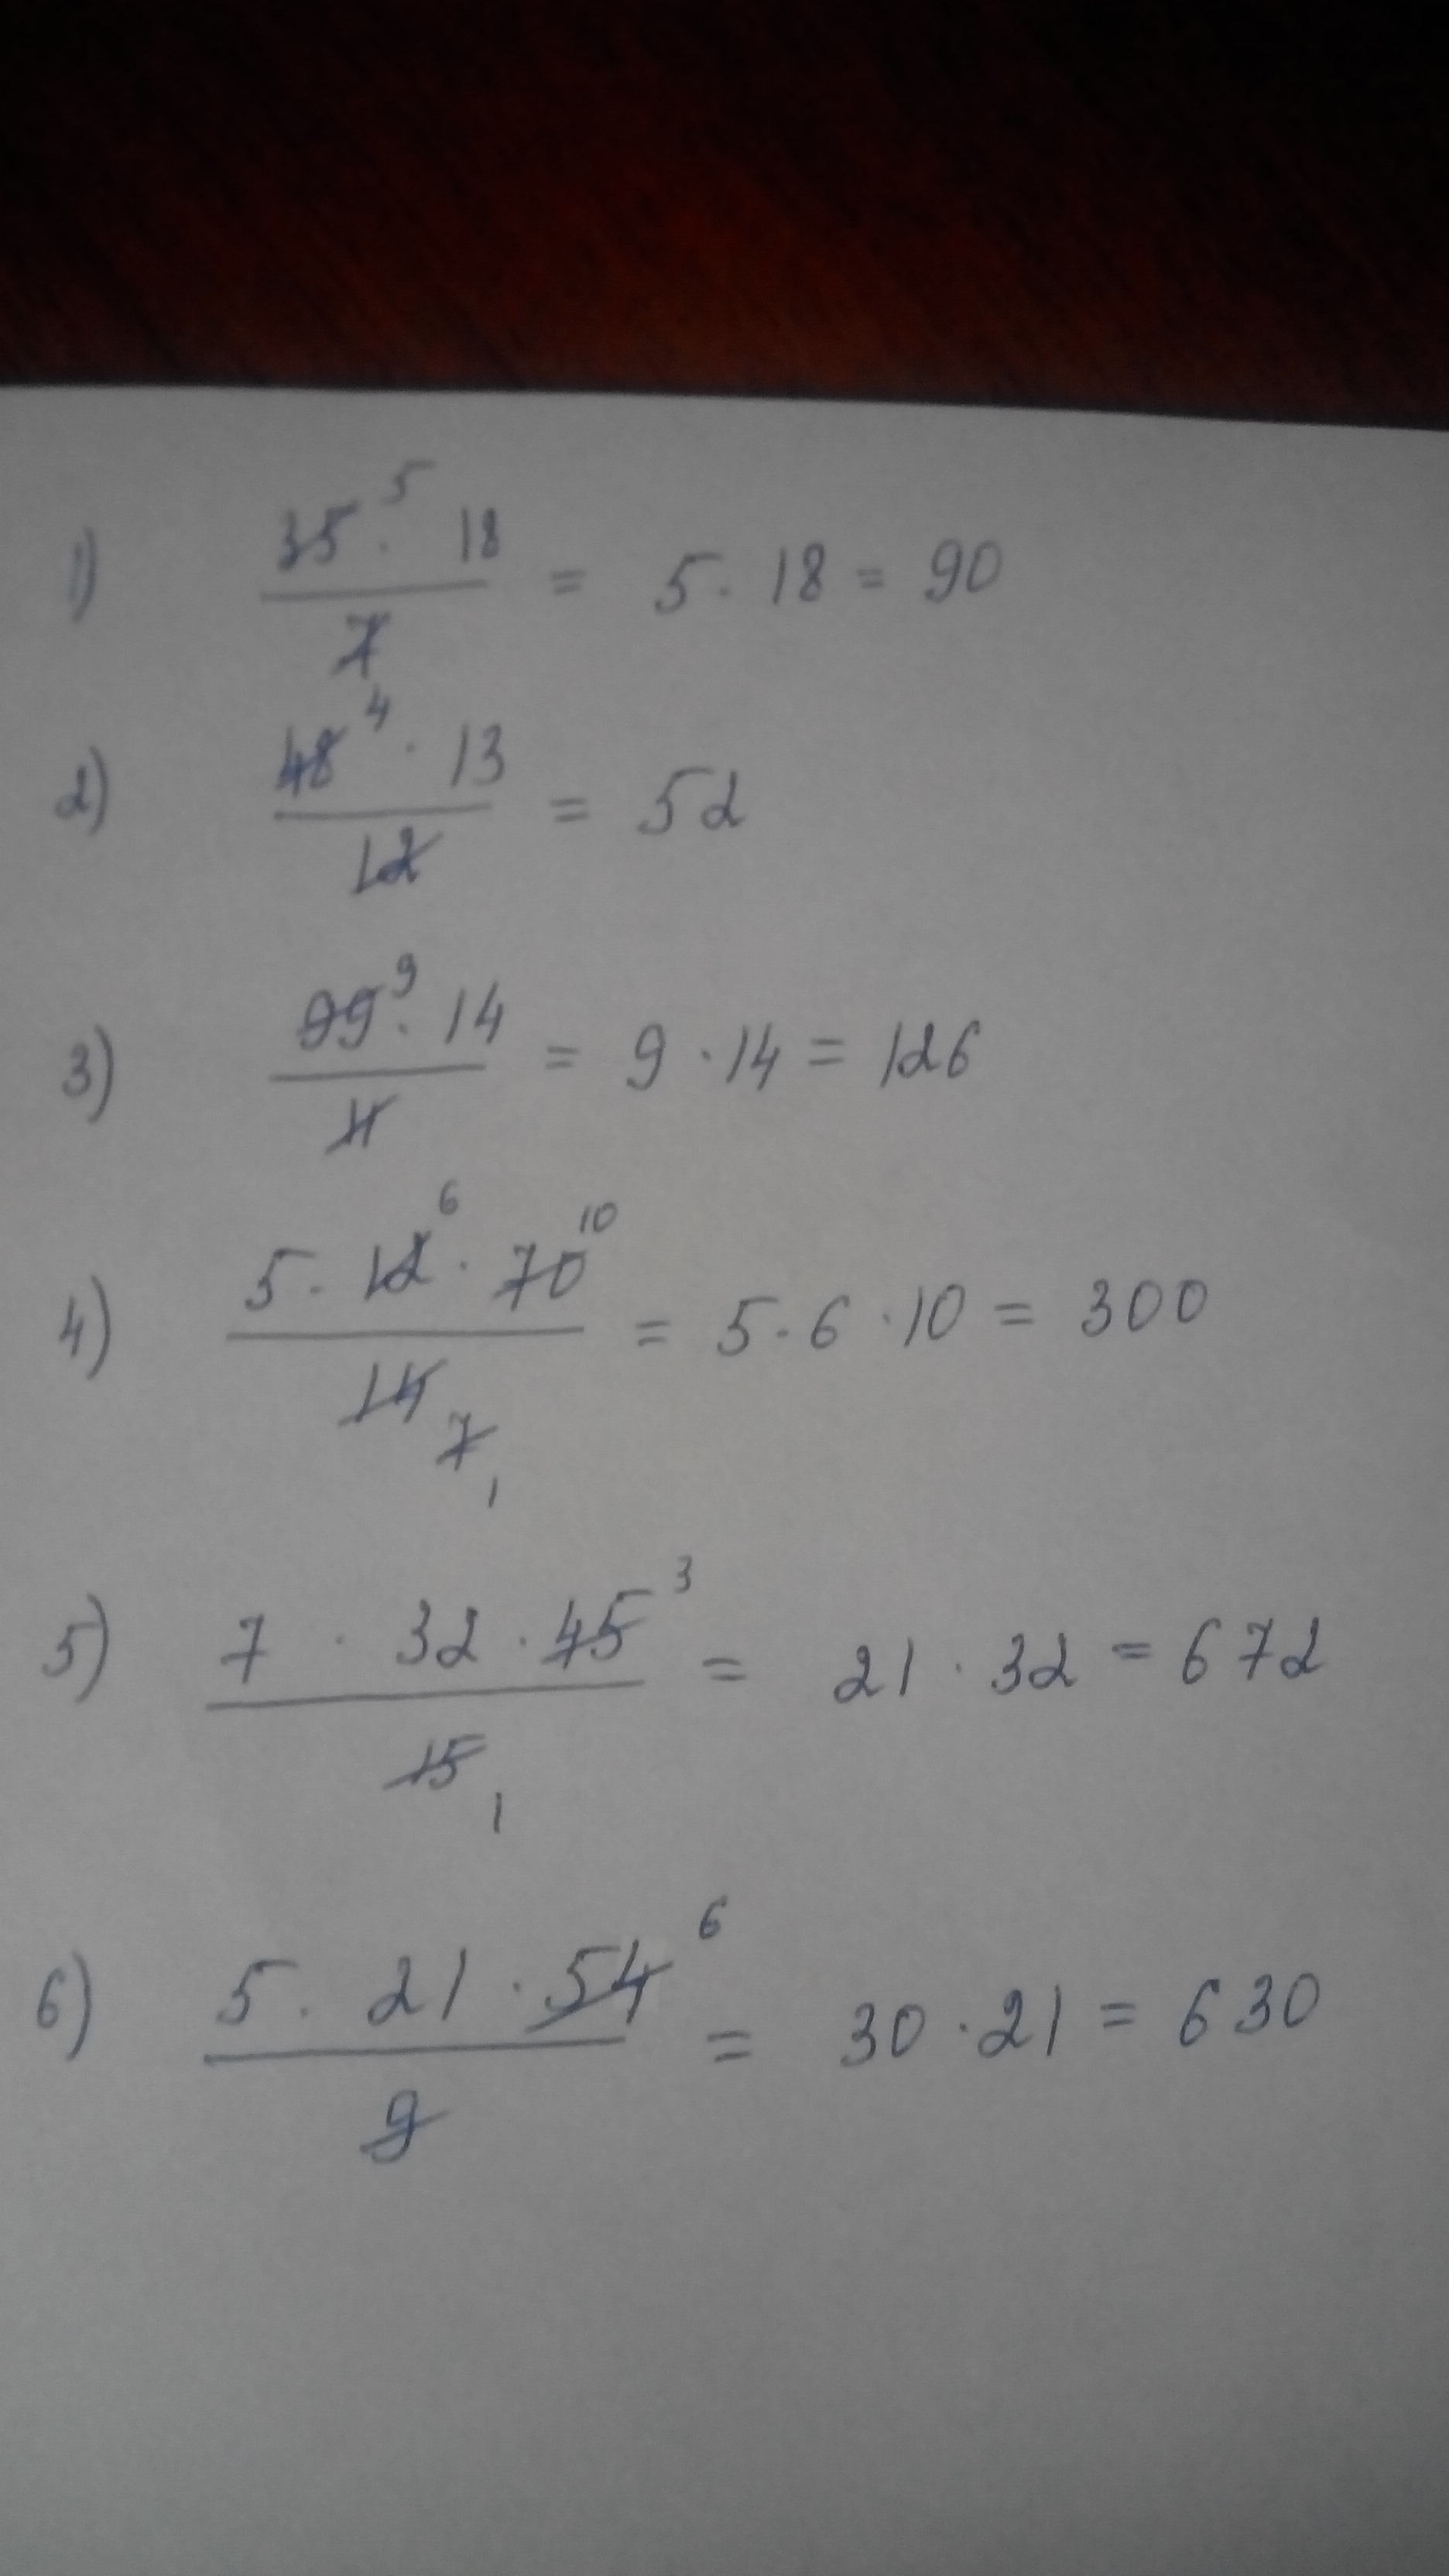 1) 35⁵ · 18 / 7 = 5 · 18 = 90
2) 48⁴ · 13 / 12 = 52
3) 99⁹ · 14 / 11 = 9 · 14 = 126
4) 5 · 12⁶ · 70¹⁰ / 14 7 1 = 5 · 6 · 10 = 300
5) 7 · 32 · 45³ / 15 1 = 21 · 32 = 672
6) 5 · 21 · 54⁶ / 9 = 30 · 21 = 630